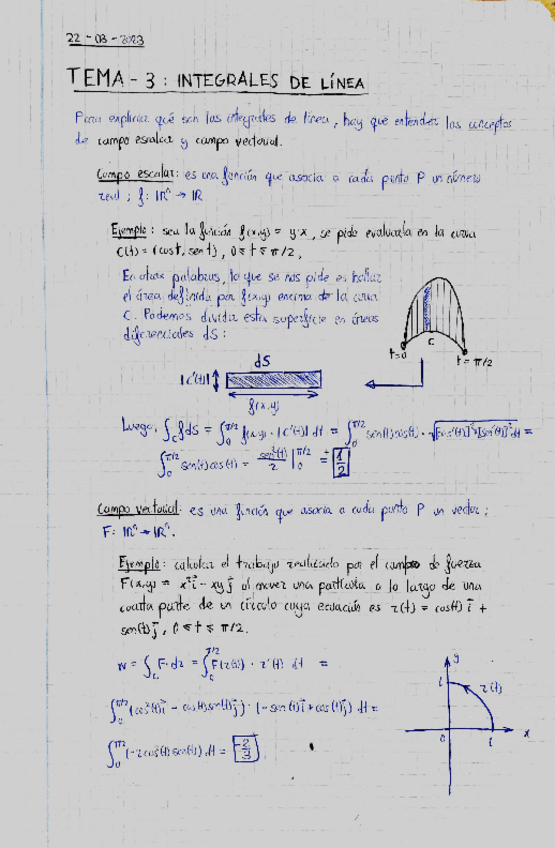 22-03-2023
TEMA-3: INTEGRALES DE LÍNEA
Para explicar qué son las integrales de línea, hay que entender los conceptos
de campo escalar y campo vectorial.
Campo escalar: es una función que asocia a cada punto P un número
real; f: ℝⁿ → ℝ
Ejemplo: sea la función f(x,y) = y·x, se pide evaluarla en la curva
C(t) = (cost, sen t), 0 ≤ t ≤ π/2,
En otras palabras, lo que se nos pide es hallar
el área definida por f(x,y) encima de la curva
C. Podemos dividir esta superficie en áreas
diferenciales dS:
C
t=0
t = π/2
dS
|c'(t)|
f(x,y)
Luego, ∫_C f dS = ∫₀^{π/2} f(x,y) · |C'(t)| dt = ∫₀^{π/2} sen(t)cos(t) · √([cos'(t)]²+[sen'(t)]²) dt =
∫₀^{π/2} sen(t)cos(t) = sen²(t)/2 |₀^{π/2} = 1/2
Campo vectorial: es una función que asocia a cada punto P un vector;
F: ℝⁿ → ℝⁿ.
Ejemplo: calcular el trabajo realizado por el campo de fuerza
F(x,y) = x²i - xyj al mover una partícula a lo largo de una
cuarta parte de un círculo cuya ecuación es r(t) = cos(t) i +
sen(t) j, 0 ≤ t ≤ π/2.
W = ∫_C F·dr = ∫₀^{π/2} F(r(t)) · r'(t) dt =
∫₀^{π/2} (cos²(t)i - cos(t)sen(t)j) · (-sen(t)i + cos(t)j) dt =
∫₀^{π/2} (-2cos²(t)sen(t)) dt = -2/3
y
1
r(t)
0
1
x